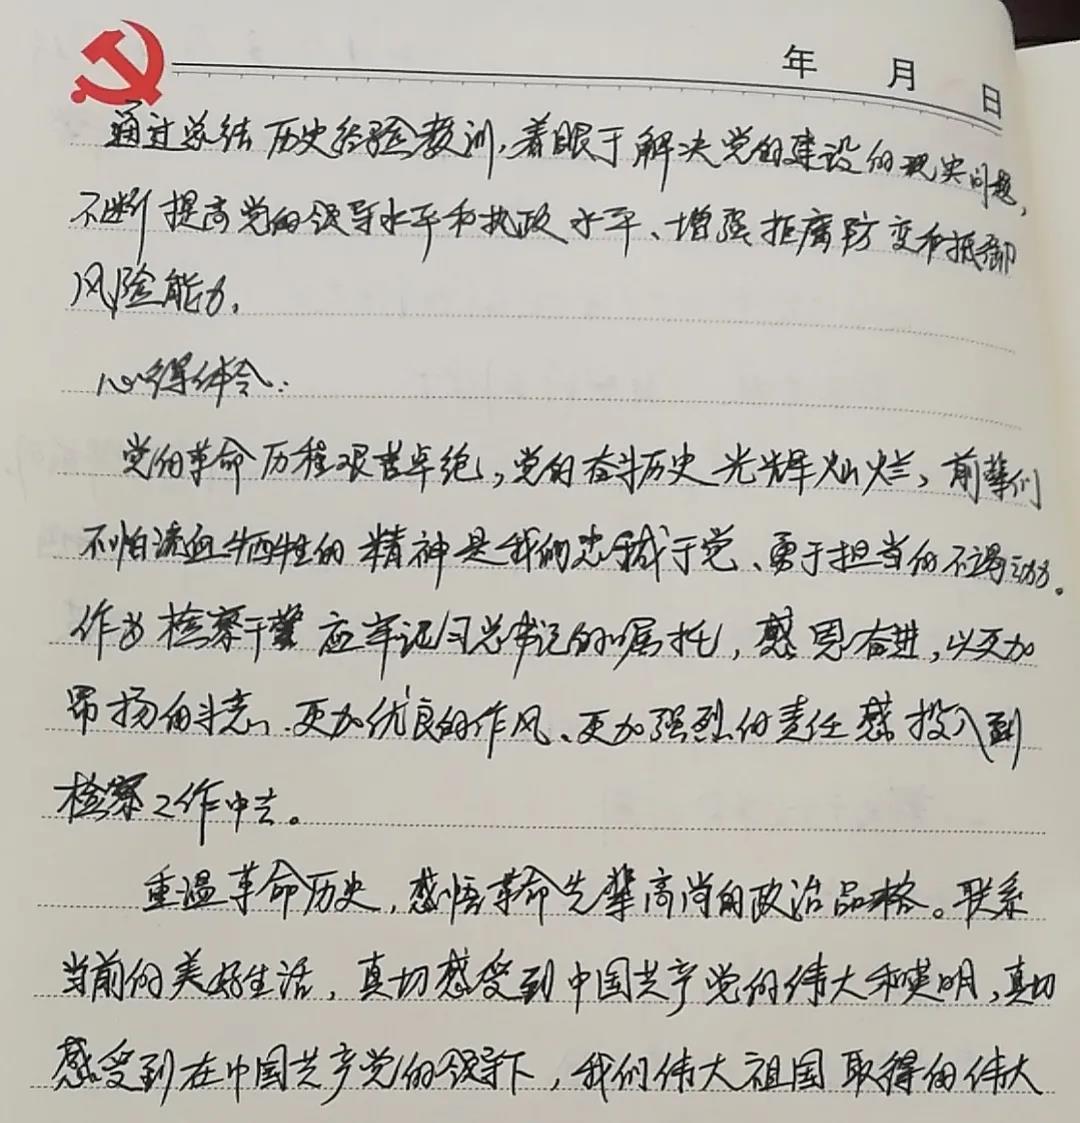 年 月 日
通过总结历史经验教训，着眼于解决党的建设的现实问题，
不断提高党的领导水平和执政水平、增强拒腐防变和抵御
风险能力。
心得体会：
党的革命历程艰苦卓绝，党的奋斗历史光辉灿烂，前辈们
不怕流血牺牲的精神是我们忠诚于党、勇于担当的不竭动力。
作为检察干警应牢记习总书记的嘱托，感恩奋进，以更加
昂扬的斗志、更加优良的作风、更加强烈的责任感投入到
检察工作中去。
重温革命历史，感悟革命先辈高尚的政治品格。联系
当前的美好生活，真切感受到中国共产党的伟大和英明，真切
感受到在中国共产党的领导下，我们伟大祖国取得的伟大